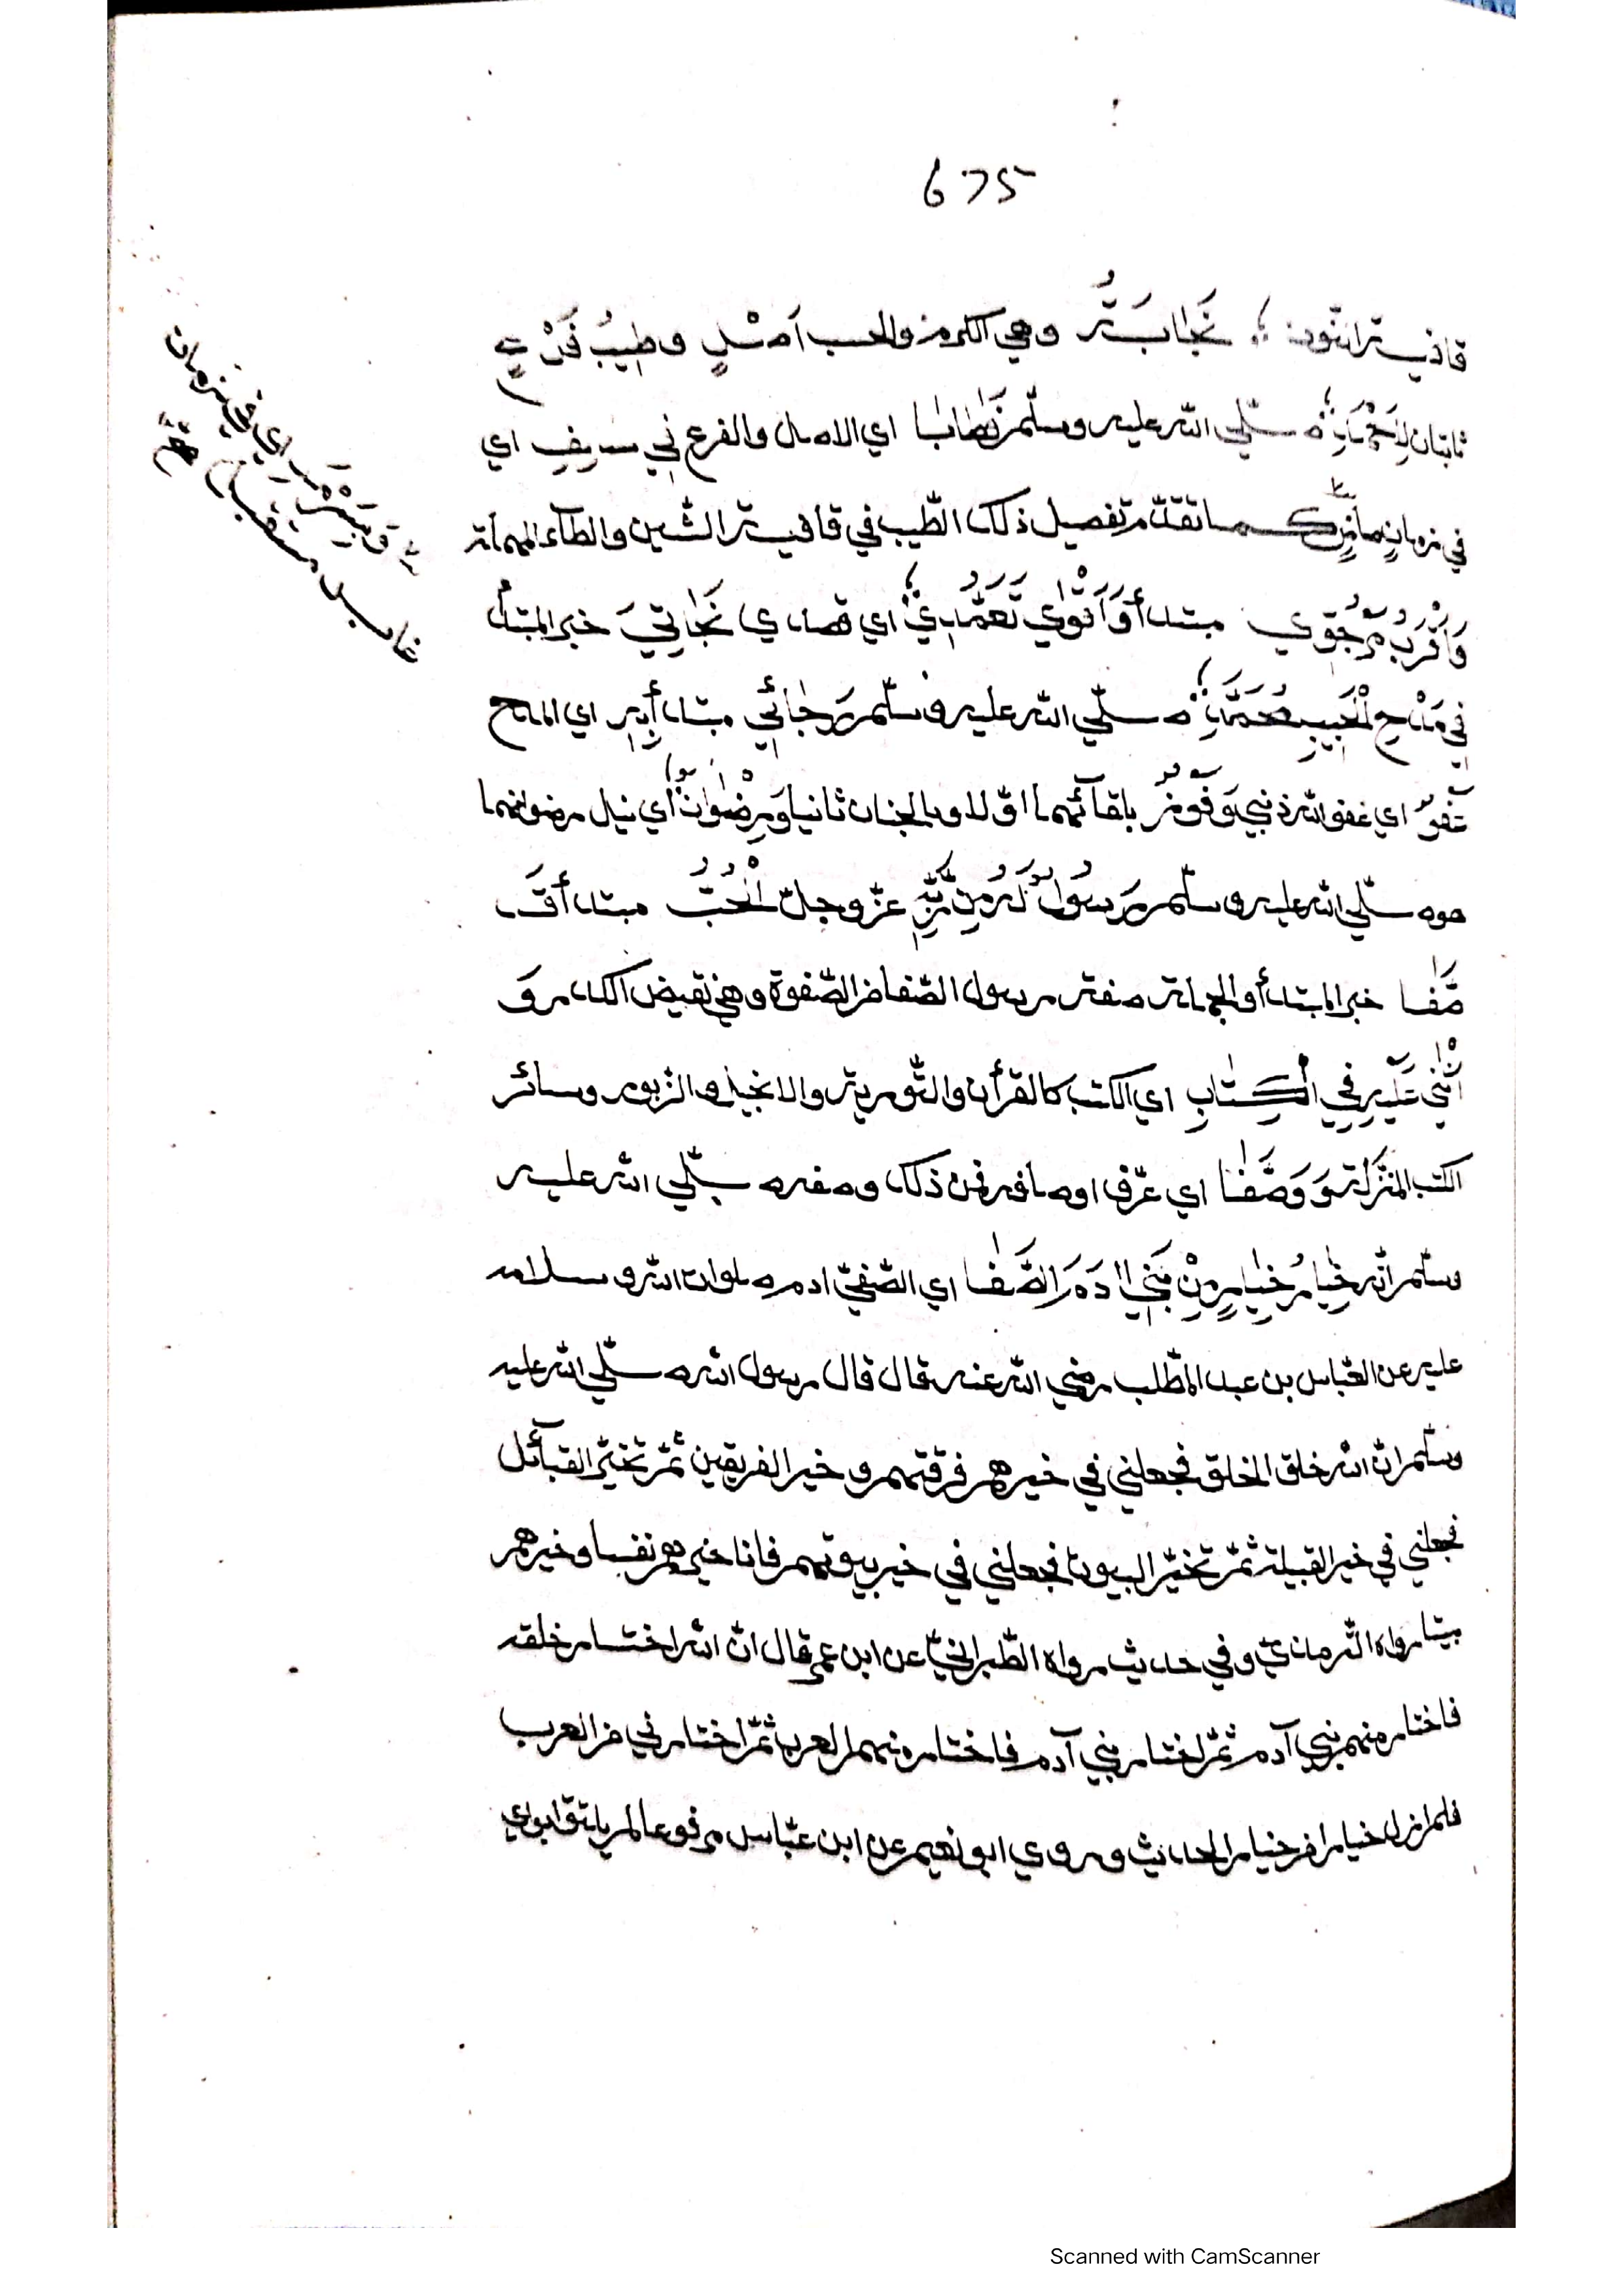 675
قافية النون نَجَابَةُ وهي الكرم والحسب اَصْلٍ وَطِيبُ فَرْعٍ
ثابتان لِاَحْمَدٍ صلّي الله عليه وسلّم طَابَا اي الاصل والفرع فِي سَيفِ اي
في زمانٍ مَاضٍ كما تقدّم تفصيل ذلك الطّيب في قافية الشين والطآء المهملة
وَاَقْرَبُ مَرْجُوِّي مبتدأ وَاَقْوَي تَعَمُّدِي اي قصدي نَجَاتِيَ خبر المبتدأ
فِي مَدْحِ الْحَبِيبِ مُحَمَّدٍ صلّي الله عليه وسلّم رَجَائِي مبتدأ بِهِ اي المدح
عَفْوٌ اي عفو الله ذنبي وَفَوْزٌ بلقآئهما اوّلا وبالجنان ثانيا وَرِضْوَانٌ اي نيل رضوانهما
هوه صلّي الله عليه وسلّم رَسُولٌ لَهُ مِنْ رَبِّهِ عزّ وجلّ الْحُبُّ مبتدأ قَدْ
صَّفَا خبر المبتدأ والجملة صفة رسول الصّفا ضر الصّفوة وهي نقيض الكدر وَ
اَثْنٰي عَلَيْهِ فِي الْكِتَابِ اي الكتب كالقرأن والتّورية والانجيل والزبور وسائر
الكتب المنزّلة وَوَصَّفَا اي عرّف اوصافه فمن ذلك وصفه صلّي الله عليه
وسلّم انّه خِيَارُ خِيَارٍ مِنْ بَنِي اٰدَمَ الصَّفَا اي الصّفيّ ادم صلوات الله وسلامه
عليه عن العبّاس بن عبد المطّلب رضي الله عنه قال قال رسول الله صلّي الله عليه
وسلّم انّ الله خلق الخلق فجعلني في خيرهم فرقتهم وخير الفريقين ثمّ تخيّر القبآئل
فجعلني في خير القبيلة ثمّ تخيّر البيوت فجعلني في خير بيوتهم فانا خيرهم نفسا وخيرهم
بيتا رواه الترمذي وفي حديث رواه الطّبرانيّ عن ابن عمر قال انّ الله اختار خلقه
فاختار منهم بني آدم ثمّ اختار بني آدم فاختار منهم العرب ثمّ اختارني من العرب
فلم ازل خيارا من خيار الحديث وروي ابو نعيم عن ابن عبّاس مرفوعا لم يلتق ابواي
اي في زمان
مستقبل
Scanned with CamScanner